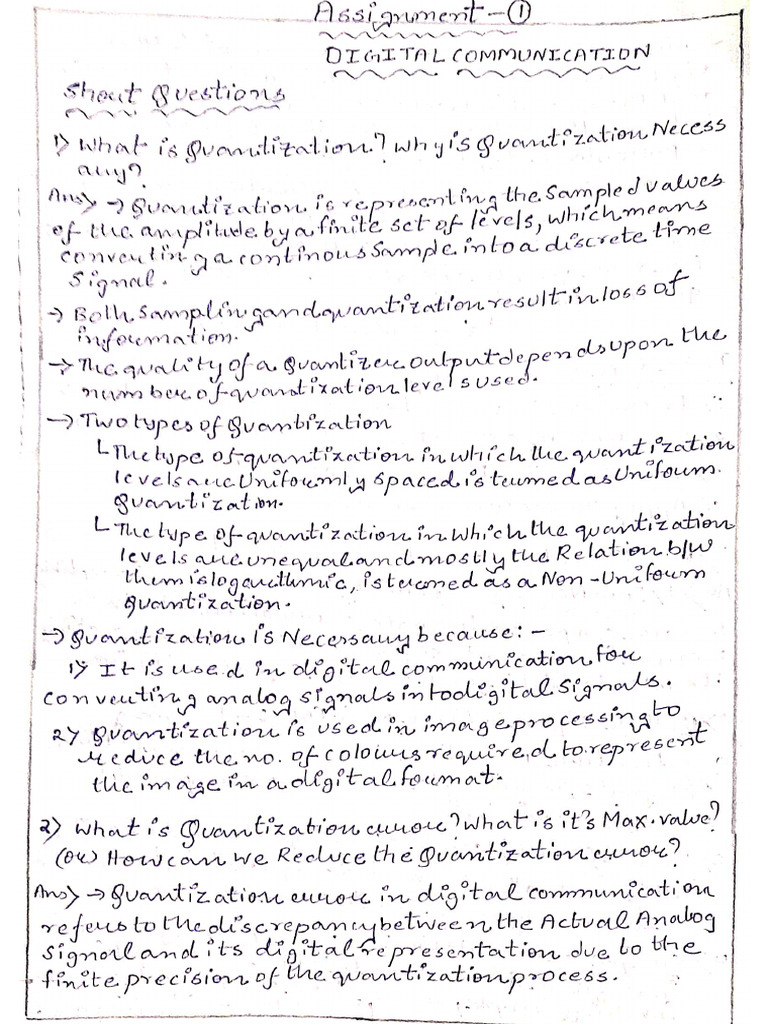 Assignment - ①
DIGITAL COMMUNICATION
Short Questions
1) What is Quantization? Why is Quantization Necess
ary?
Ans) → Quantization is representing the Sampled values
of the amplitude by a finite set of levels, which means
converting a continous Sample into a discrete time
Signal.
→ Both Sampling and quantization result in loss of
information.
→ The quality of a Quantizer output depends upon the
number of quantization levels used.
→ Two types of Quantization
└ The type of quantization in which the quantization
levels are Uniformly spaced is termed as Uniform
Quantization.
└ The type of quantization in which the quantization
levels are unequal and mostly the Relation b/w
them is logarithmic, is termed as a Non-Uniform
Quantization.
→ Quantization is Necessary because: -
1) It is used in digital communication for
converting analog signals into digital Signals.
2) Quantization is used in image processing to
reduce the no. of colours required to represent
the image in a digital format.
2) What is Quantization error? What is it's Max. value?
(or) How can we Reduce the Quantization error?
Ans) → Quantization error in digital communication
refers to the discrepancy between the Actual Analog
Signal and its digital representation due to the
finite precision of the quantization process.